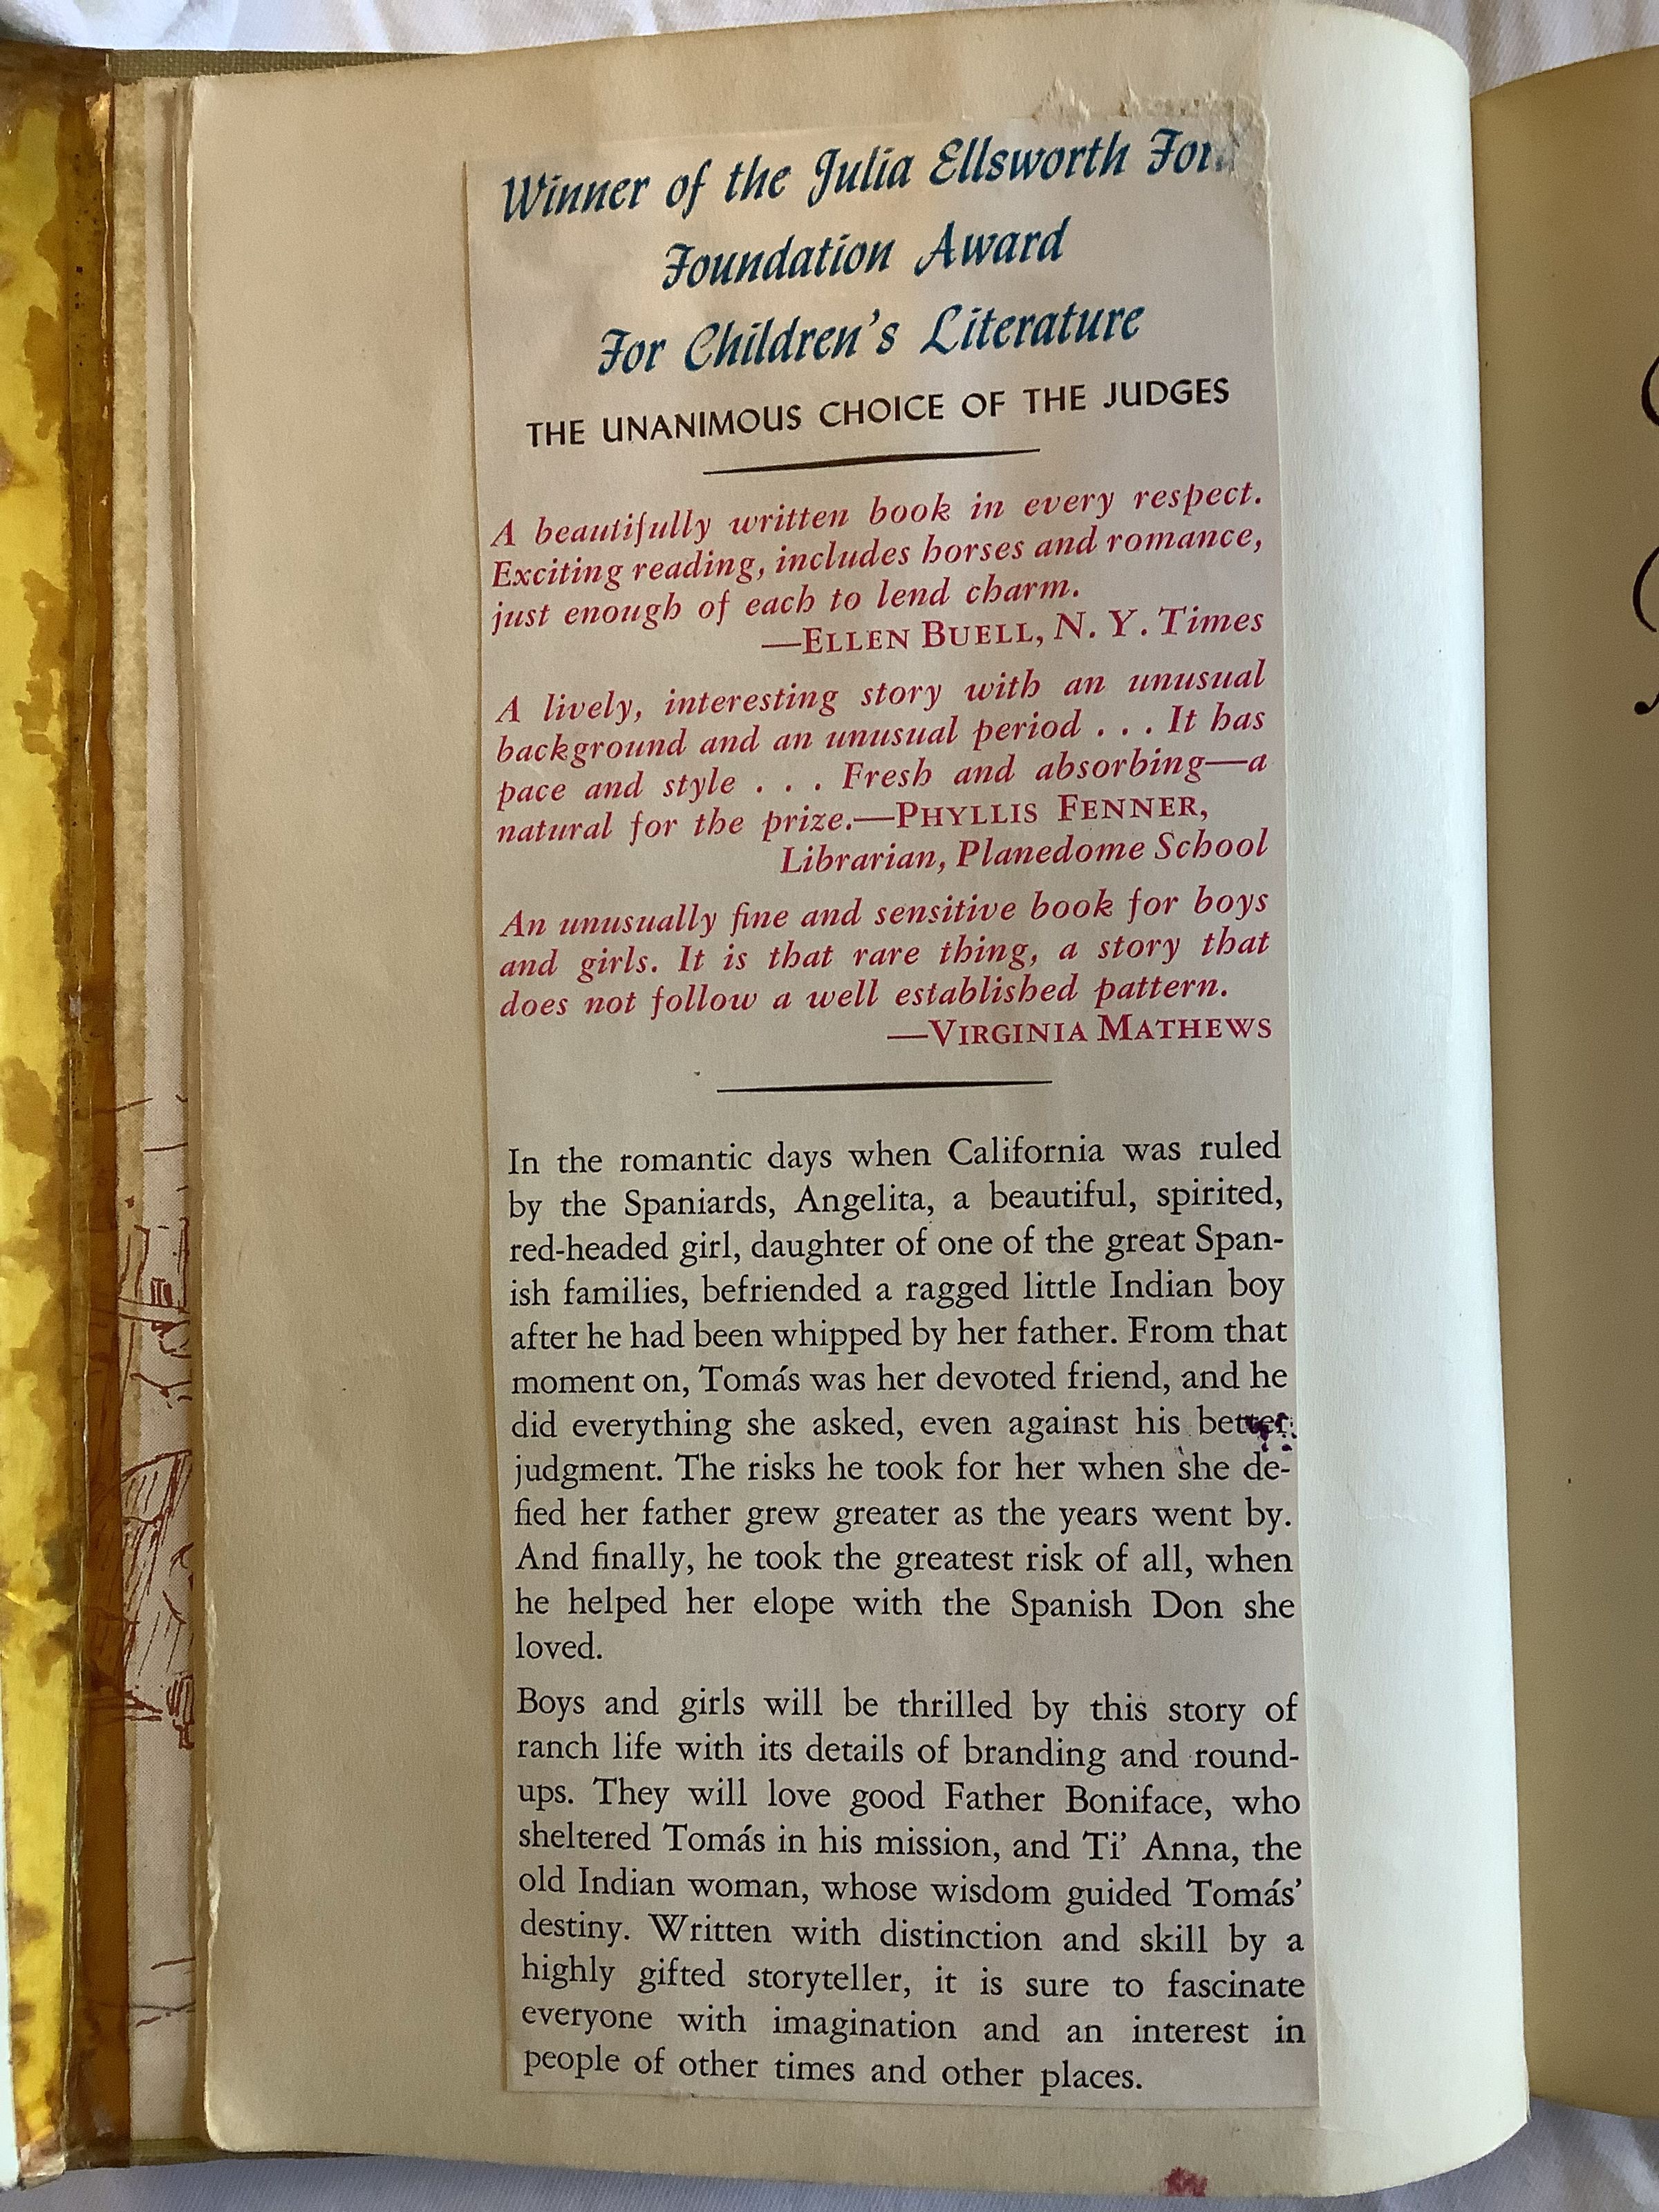 Winner of the Julia Ellsworth
Foundation Award
For Children's Literature
THE UNANIMOUS CHOICE OF THE JUDGES
A beautifully written book in every respect.
Exciting reading, includes horses and romance,
just enough of each to lend charm.
—ELLEN BUELL, N. Y. Times
A lively, interesting story with an unusual
background and an unusual period . . . It has
pace and style . . . Fresh and absorbing—a
natural for the prize.—PHYLLIS FENNER,
Librarian, Planedome School
An unusually fine and sensitive book for boys
and girls. It is that rare thing, a story that
does not follow a well established pattern.
—VIRGINIA MATHEWS
In the romantic days when California was ruled
by the Spaniards, Angelita, a beautiful, spirited,
red-headed girl, daughter of one of the great Span-
ish families, befriended a ragged little Indian boy
after he had been whipped by her father. From that
moment on, Tomás was her devoted friend, and he
did everything she asked, even against his better
judgment. The risks he took for her when she de-
fied her father grew greater as the years went by.
And finally, he took the greatest risk of all, when
he helped her elope with the Spanish Don she
loved.
Boys and girls will be thrilled by this story of
ranch life with its details of branding and round-
ups. They will love good Father Boniface, who
sheltered Tomás in his mission, and Ti' Anna, the
old Indian woman, whose wisdom guided Tomás'
destiny. Written with distinction and skill by a
highly gifted storyteller, it is sure to fascinate
everyone with imagination and an interest in
people of other times and other places.